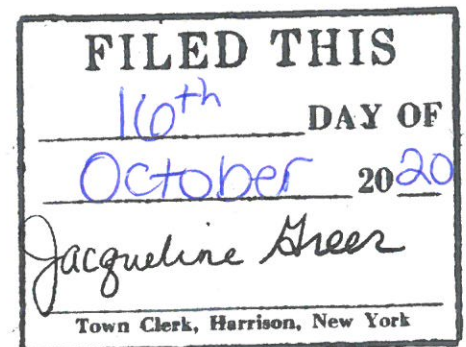 FILED THIS
16th DAY OF
October 2020
Jacqueline Greer
Town Clerk, Harrison, New York